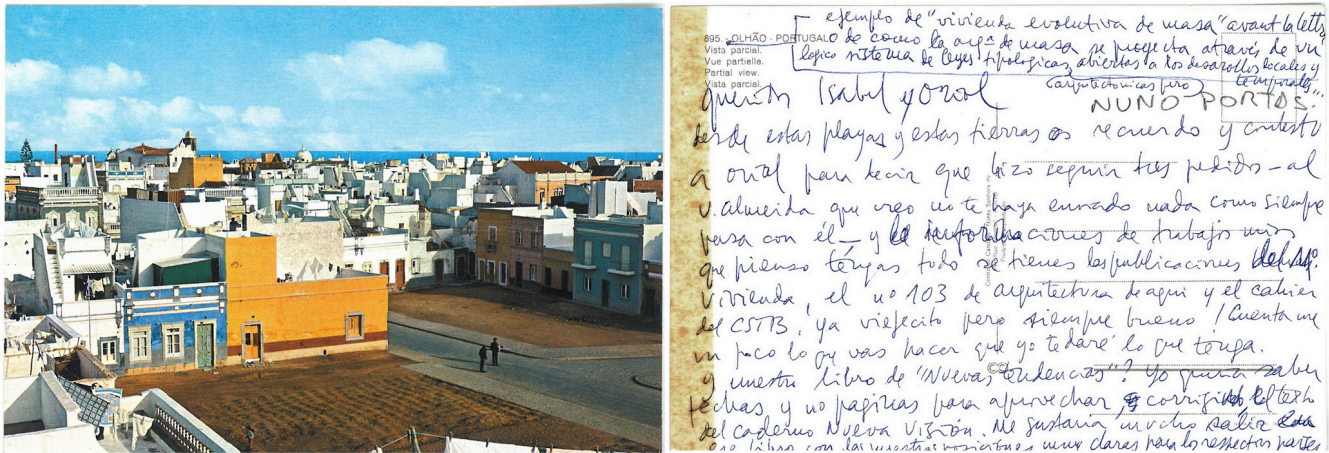 ejemplo de "vivienda evolutiva de masa" avant la lettre
o de como la arqª de masa se proyecta através de un
lógico sistema de leyes tipologicas, abiertas a los desarollos locales y
(arquitectonicas pero) temporales..."
895. - OLHÃO - PORTUGAL
Vista parcial.
Vue partielle.
Partial view.
Vista parcial.
NUNO PORTAS.
queridos Isabel y Oriol
desde estas playas y estas tierras os recuerdo y contesto
a oriol para decir que hizo seguir tres pedidos - al
V. Almeida que creo no te haya enviado nada como siempre
pasa con él - y informaciones de trabajos mios
que pienso tengas todo se tienes las publicaciones
vivienda, el nº 103 de arquitectura de aqui y el cahier
del CSTB, ya viejecito pero siempre bueno! Cuenta me
un poco lo que vas hacer que yo te daré lo que tenga.
y nuestro libro de "Nuevas tendencias"? Yo queria saber
fechas y no paginas para aprovechar corrigindo el texto
del caderno Nueva Visión. Me gustaria mucho salir
ese libro con las nuestras posiciones muy claras para los respectos partes